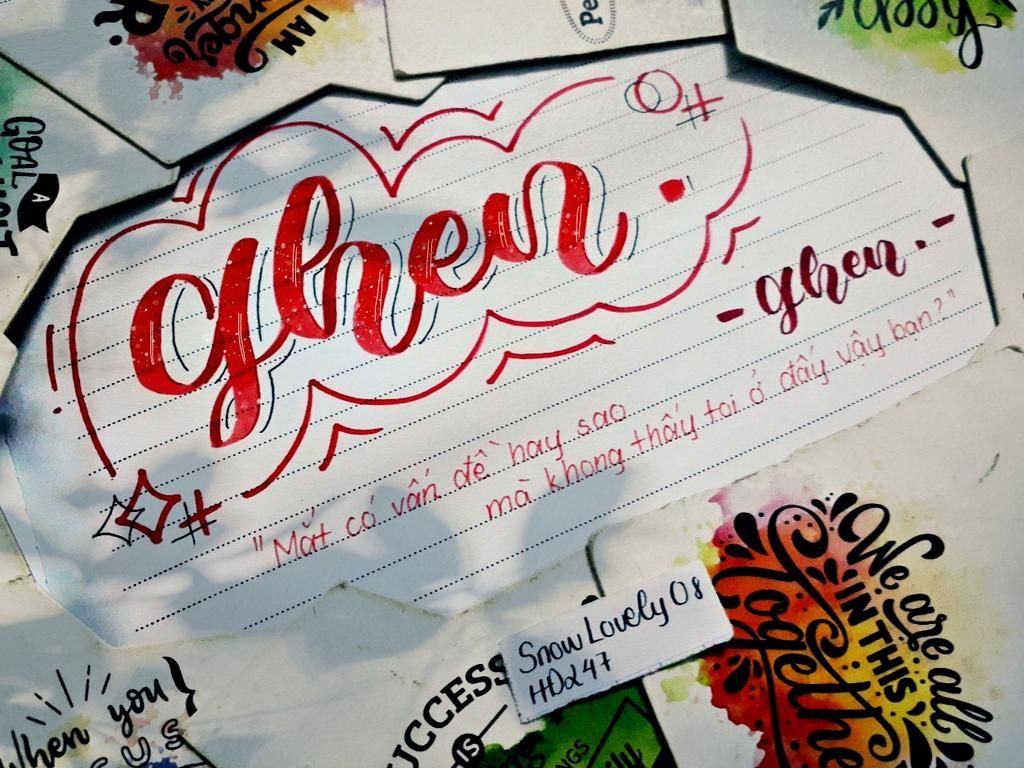 I AM
Pe
GOAL
A
ghen.
-ghen.-
"Mắt có vấn đề hay sao
mà không thấy tôi ở đấy vậy bạn?"
Snow Lovely 08
HD247
When you
UCCESS
IS
We are all
IN THIS
Togethe